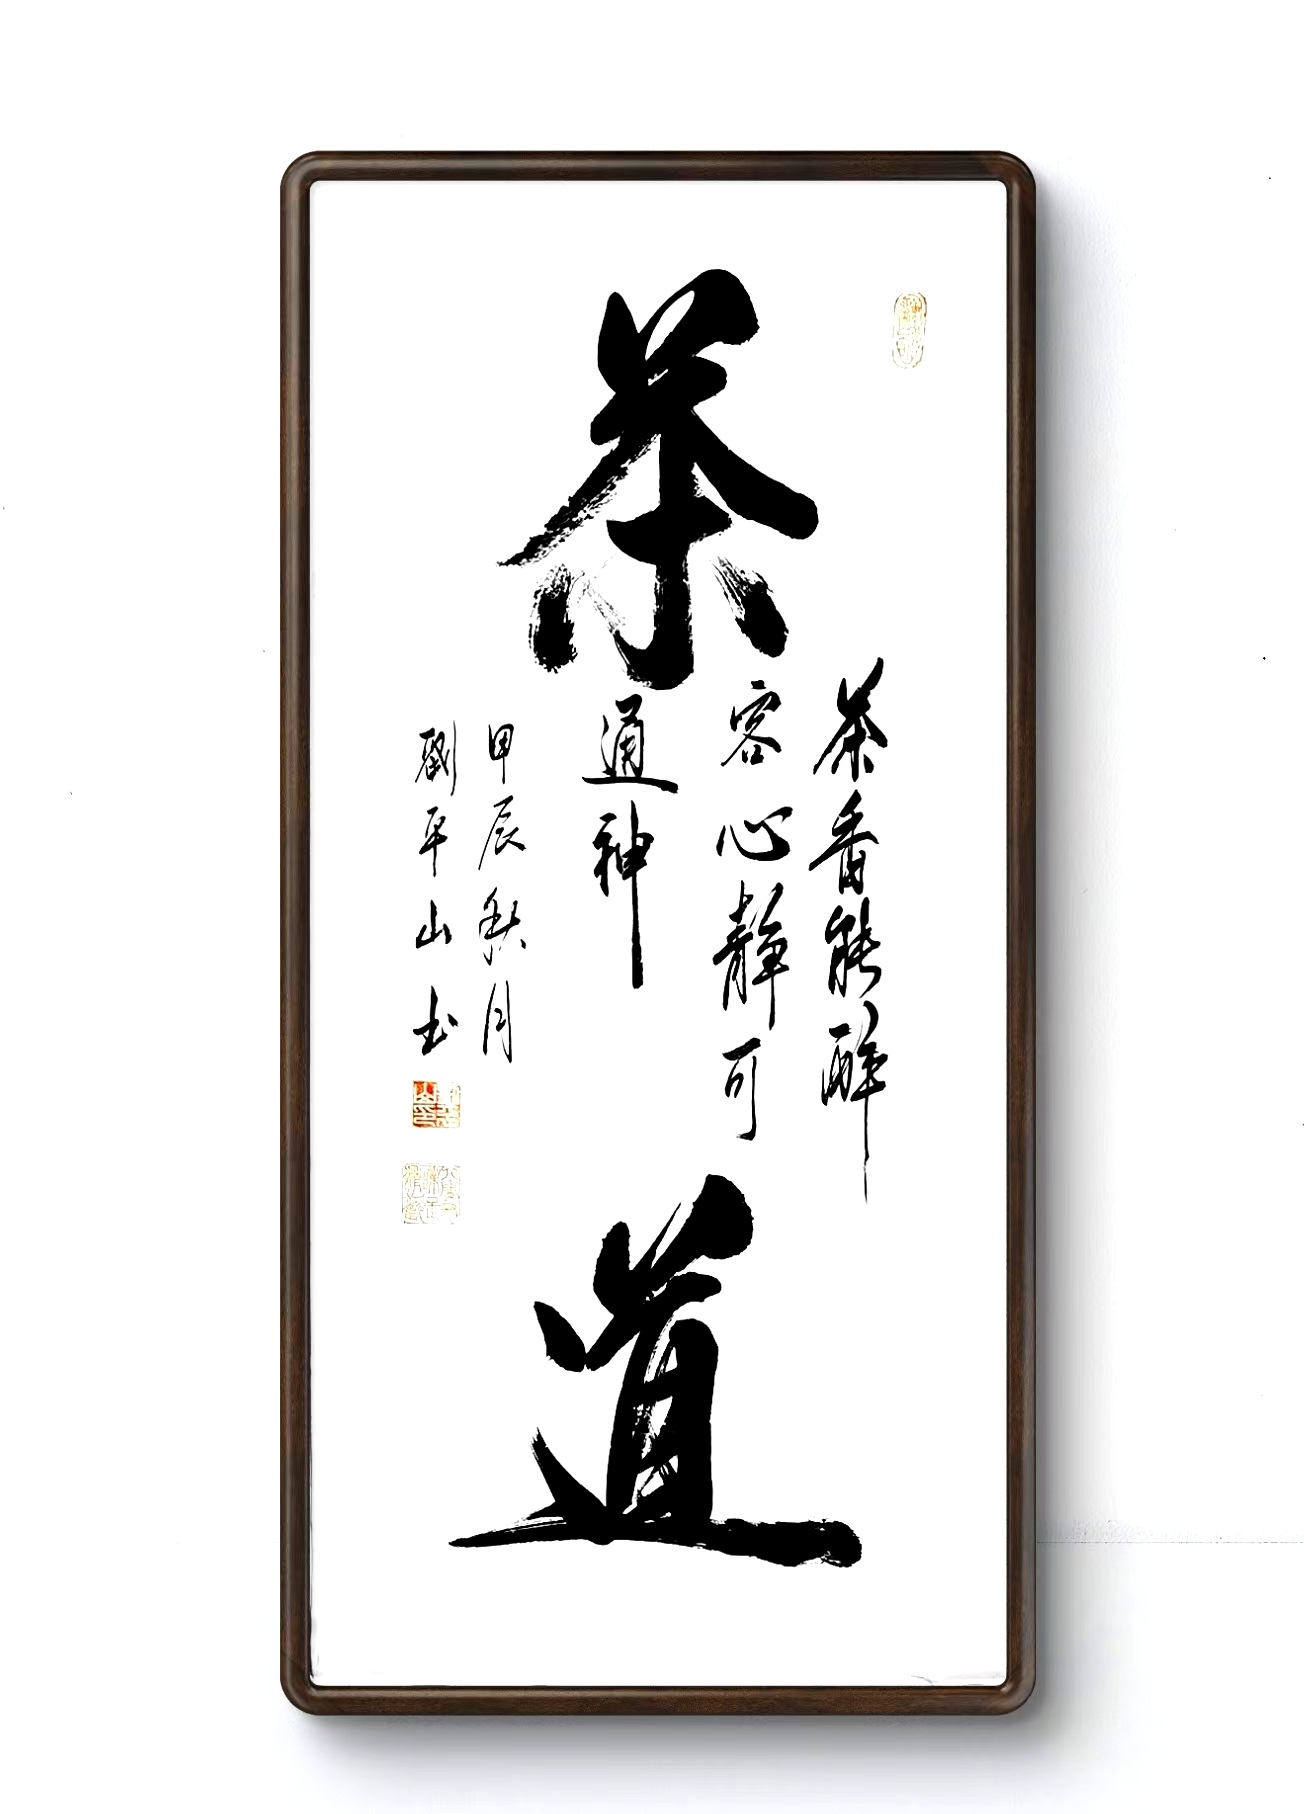 茶道
茶香能醉
容心静可
通神
甲辰秋月
劉平山书